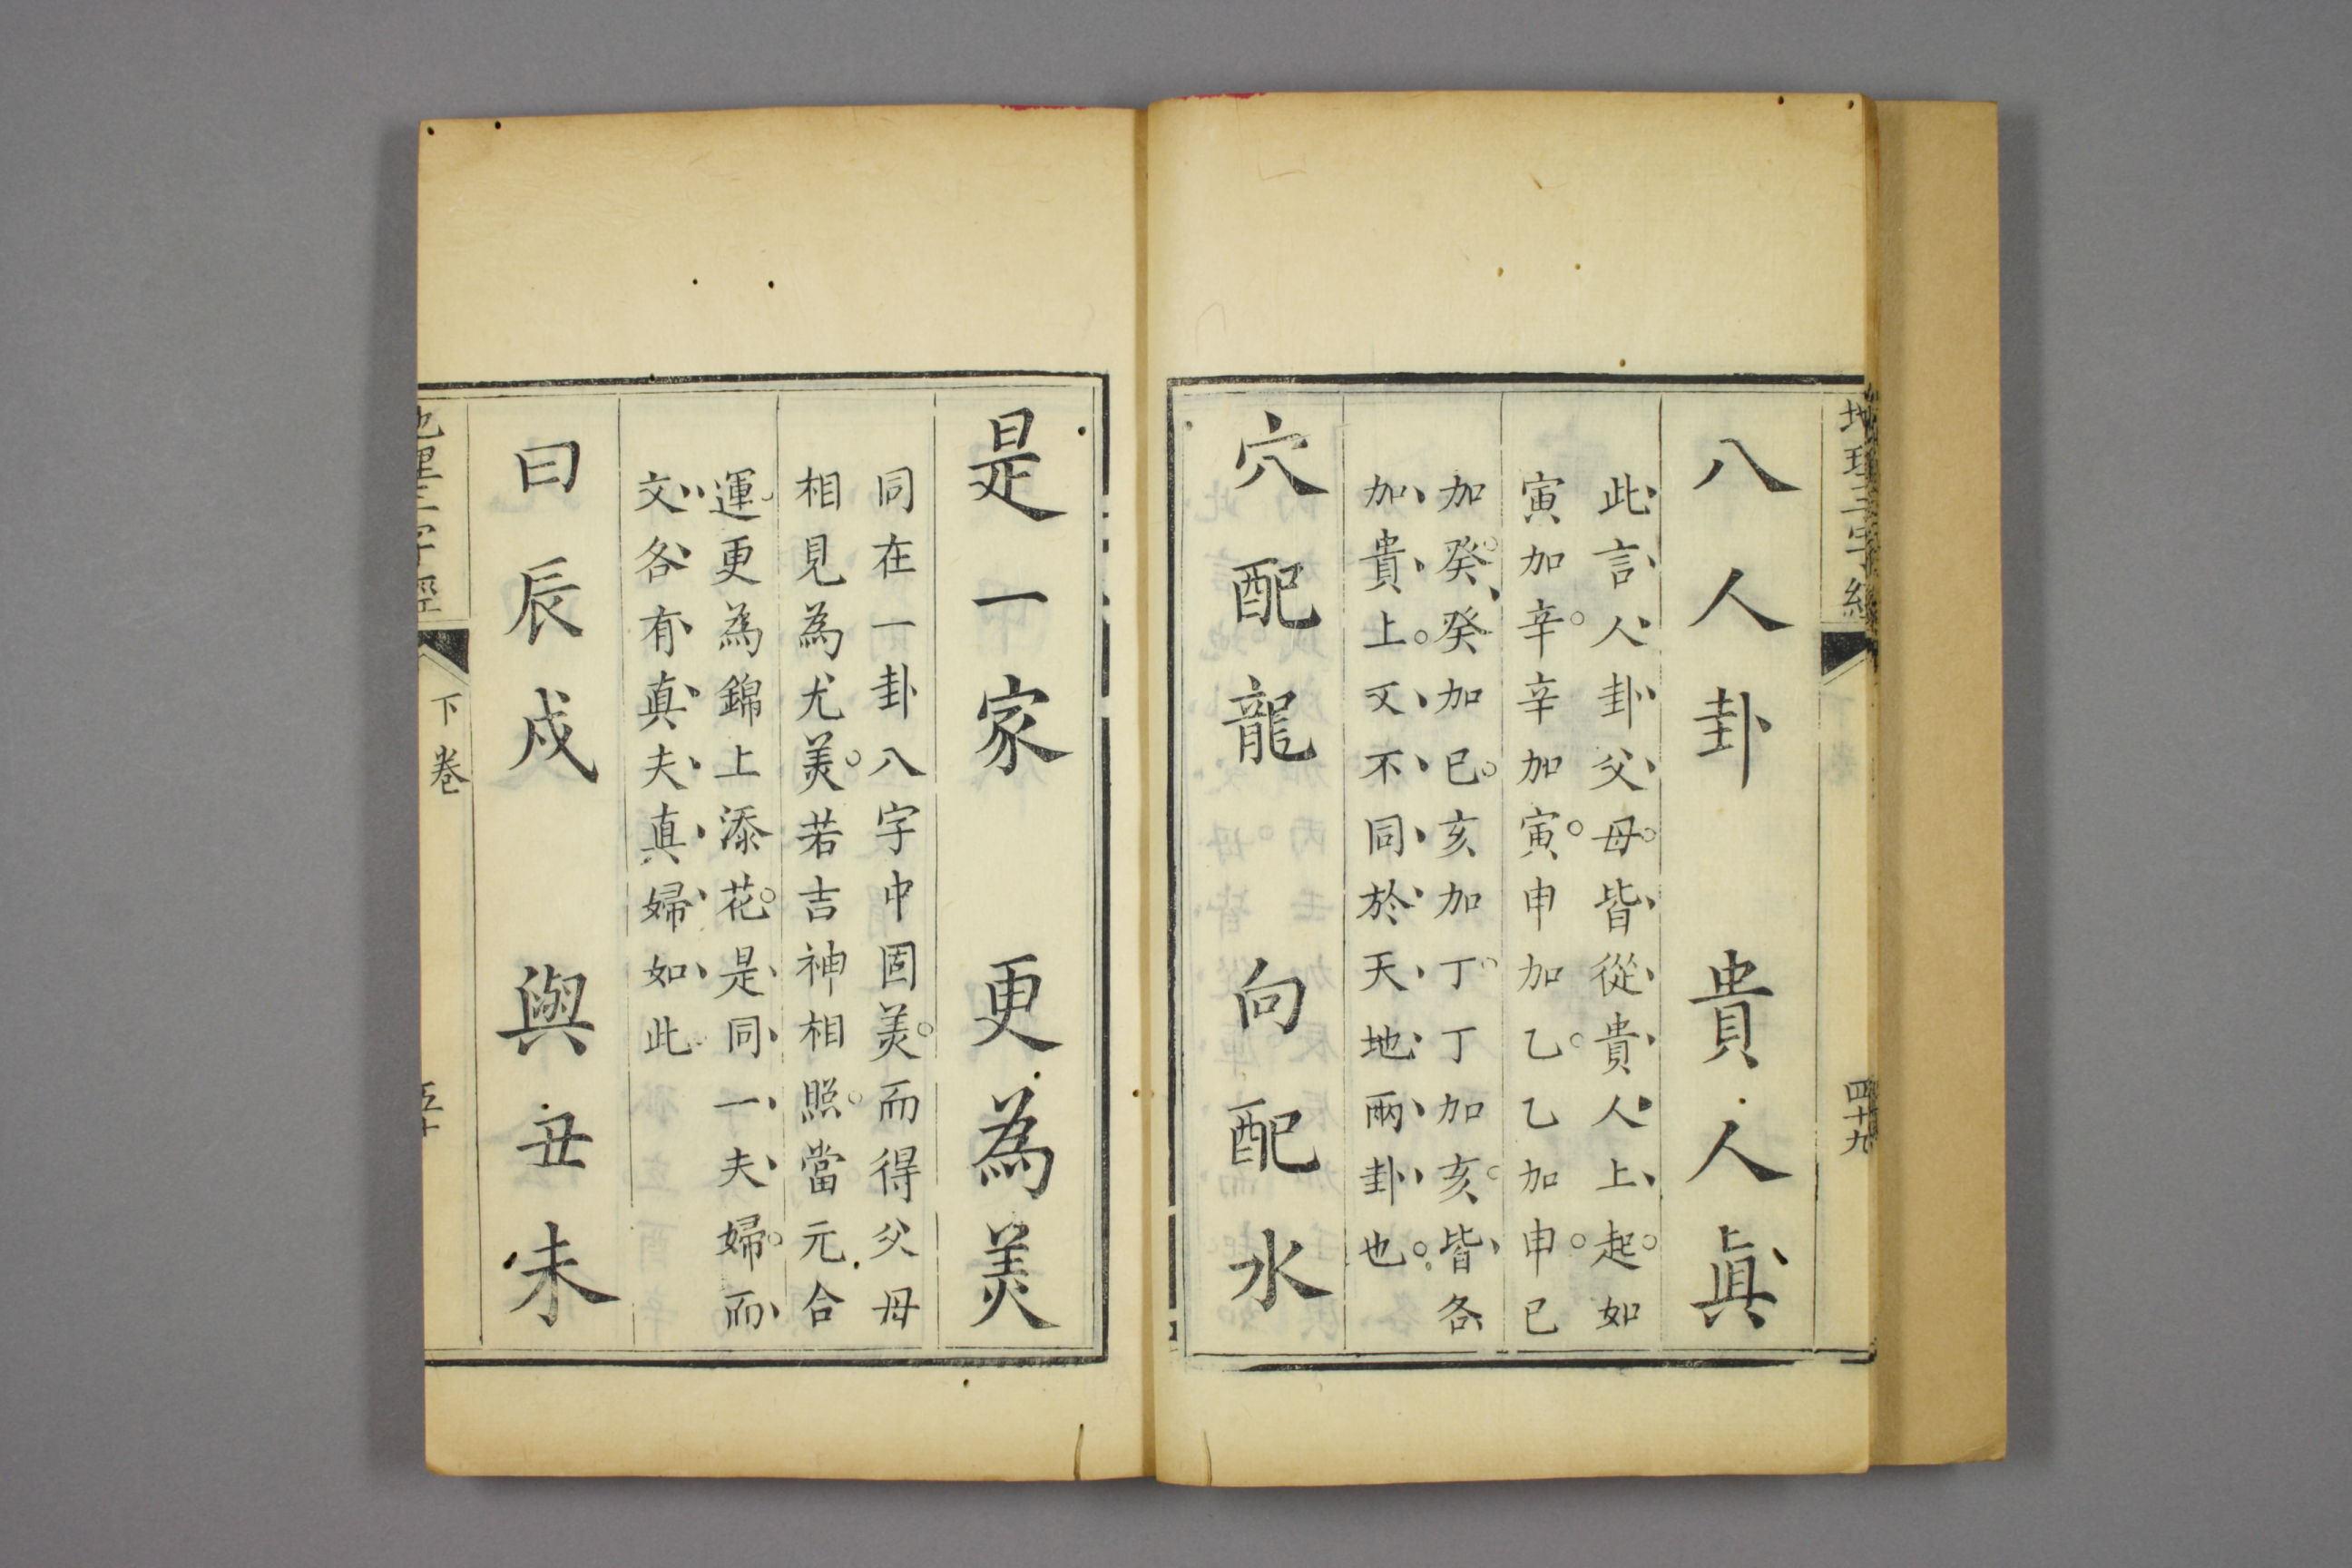 地理三字經
四十九
八人卦　貴人真
此言人卦父母皆從貴人上起如
寅加辛辛加寅申加乙乙加申巳
加癸癸加巳亥加丁丁加亥皆各
加貴上又不同於天地兩卦也
穴配龍　向配水
是一家　更為美
同在一卦八字中固美而得父母
相見為尤美若吉神相照當元合
運更為錦上添花是同一夫婦而
文各有真夫真婦如此
曰辰戌　與丑未
地理三字經
下卷
五十